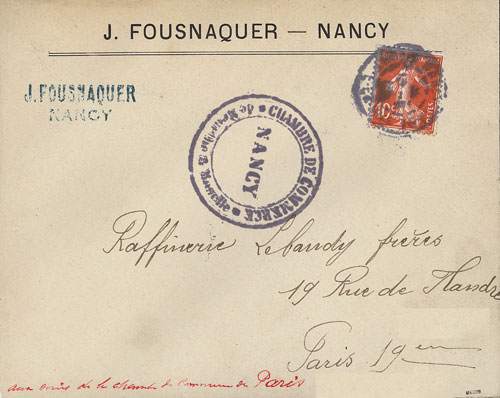 J. FOUSNAQUER — NANCY
J. FOUSNAQUER
NANCY
CHAMBRE DE COMMERCE
de Meurthe & Moselle
NANCY
10c
POSTES
Raffinerie Lebaudy frères
19 Rue de Flandre
Paris 19em
aux soins de la chambre de Commerce de Paris